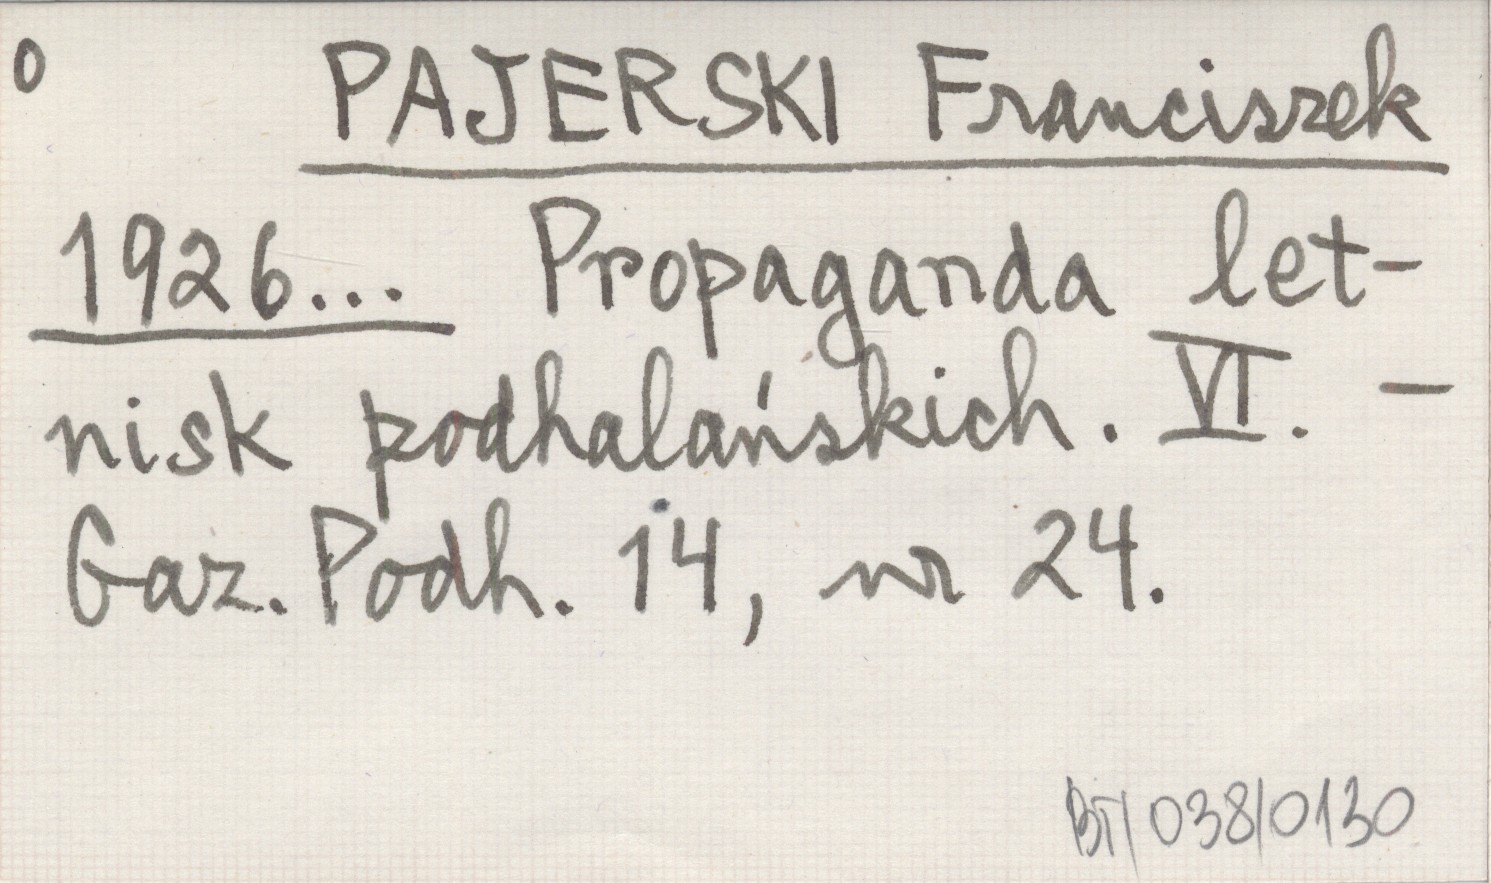 0 PAJERSKI Franciszek
1926... Propaganda let-
nisk podhalańskich. VI. –
Gaz. Podh. 14, nr 24.
BT/038/0130